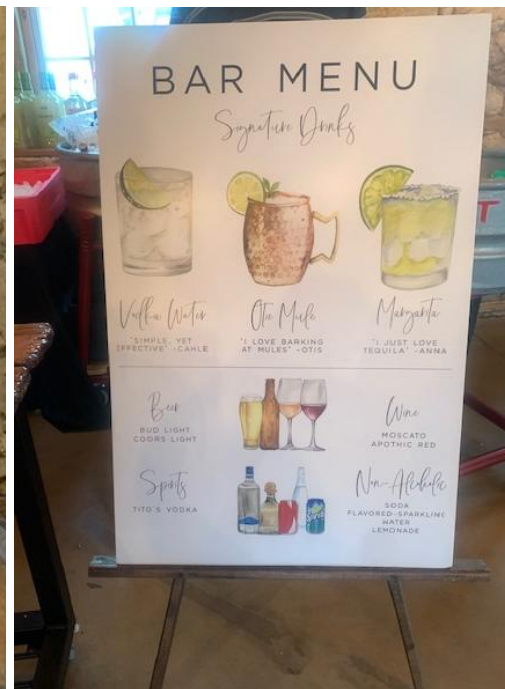 BAR MENU
Signature Drinks
Vodka Water
"SIMPLE, YET
EFFECTIVE" -CAHLE
Otie Mule
"I LOVE BARKING
AT MULES" -OTIS
Margarita
"I JUST LOVE
TEQUILA" -ANNA
Beer
BUD LIGHT
COORS LIGHT
Wine
MOSCATO
APOTHIC RED
Spirits
TITO'S VODKA
Non-Alcoholic
SODA
FLAVORED-SPARKLING
WATER
LEMONADE